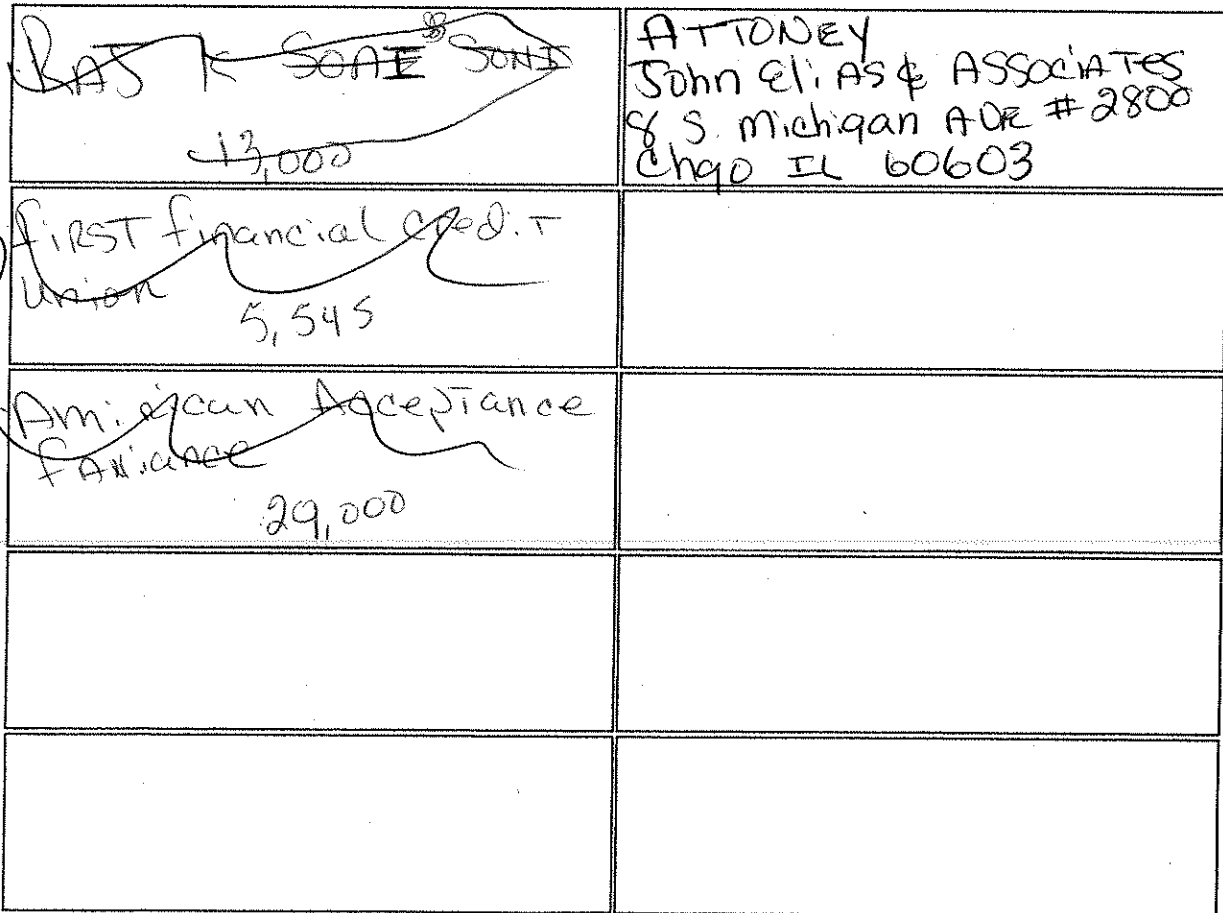 RAJ K SOAI SONI
13,000
ATTONEY
John Eli AS & ASSOCIATES
8 S. Michigan AVE #2800
Chgo IL 60603
FiRST financial Credit
Union
5,545
American Acceptance
29,000